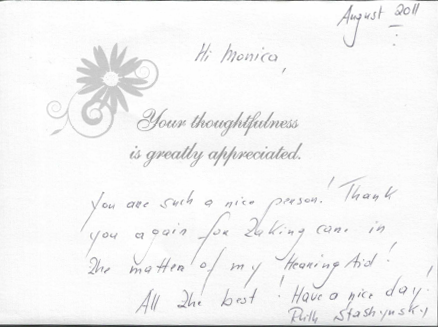 August 2011
Hi Monica,
Your thoughtfulness
is greatly appreciated.
You are such a nice person! Thank
you again for taking care in
the matter of my Hearing Aid!
All the best! Have a nice day!
Ruth Stashynsky